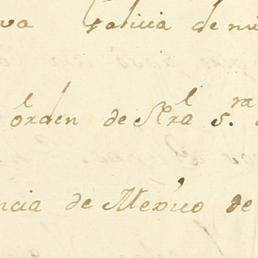 va Galicia de mi
l orden de Rl a S.ra
ncia de Mexico de